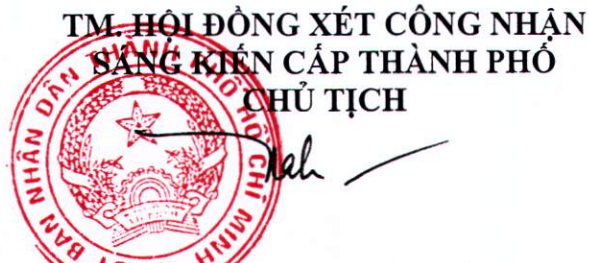 TM. HỘI ĐỒNG XÉT CÔNG NHẬN
SÁNG KIẾN CẤP THÀNH PHỐ
CHỦ TỊCH
BAN NHÂN DÂN THÀNH PHỐ HỒ CHÍ MINH